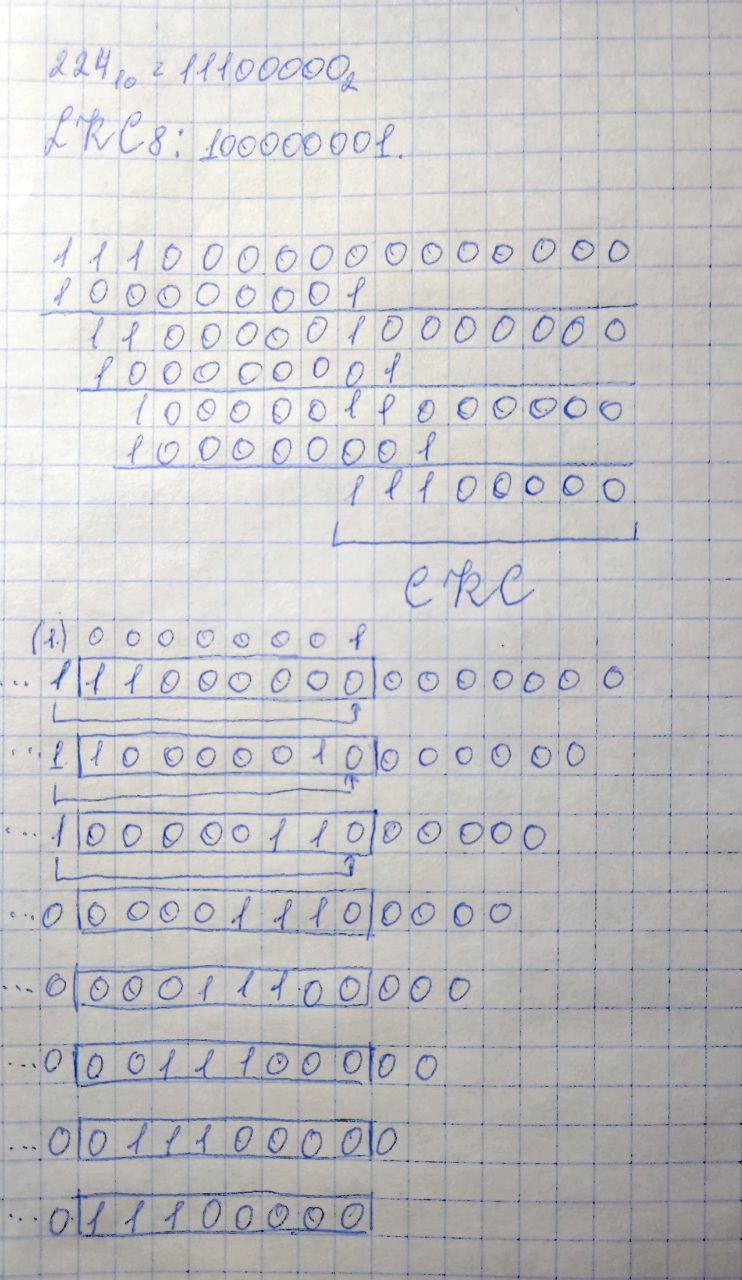 224₁₀ = 11100000₂
CRC8: 100000001.
1110000000000000
100000001
110000010000000
100000001
10000011000000
100000001
11100000
CRC
(1.) 00000001
...1|11000000|0000000
...1|10000010|000000
...1|00000110|00000
...0|00001110|0000
...0|00011100|000
...0|00111000|00
...0|01110000|0
...0|11100000|